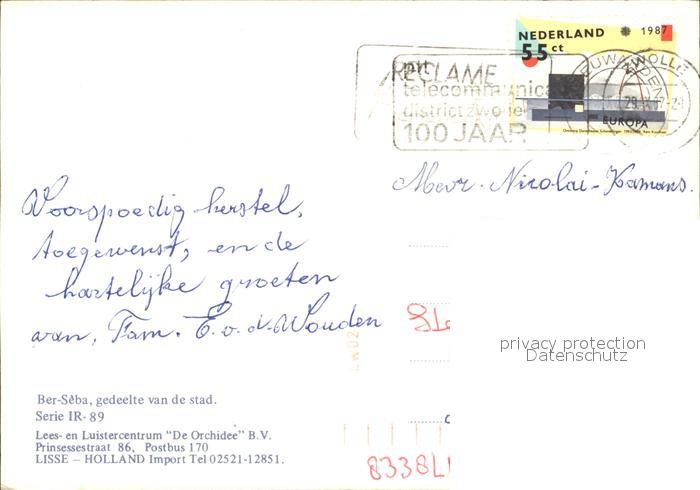 NEDERLAND 1987
55 ct
RECLAME
telecommunica
district zwolle
100 JAAR
ZWOLLE
EUROPA
Voorspoedig herstel,
toegewenst, en de
hartelijke groeten
van, Fam. E. v. d. Wouden
Mevr. Nicolai-Kamans.
privacy protection
Datenschutz
Ber-Sêba, gedeelte van de stad.
Serie IR-89
Lees- en Luistercentrum "De Orchidee" B.V.
Prinsessestraat 86, Postbus 170
LISSE – HOLLAND Import Tel 02521-12851.